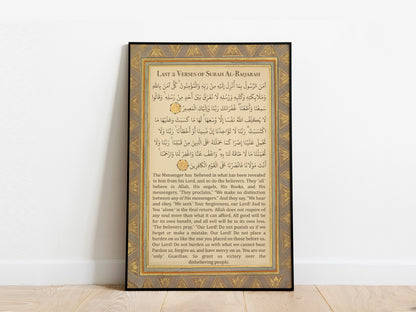 Last 2 Verses of Surah Al-Baqarah
ءَامَنَ الرَّسُولُ بِمَا أُنزِلَ إِلَيْهِ مِن رَّبِّهِ وَالْمُؤْمِنُونَ ۚ كُلٌّ ءَامَنَ بِاللَّهِ
وَمَلَائِكَتِهِ وَكُتُبِهِ وَرُسُلِهِ لَا نُفَرِّقُ بَيْنَ أَحَدٍ مِّن رُّسُلِهِ ۚ وَقَالُوا
سَمِعْنَا وَأَطَعْنَا ۖ غُفْرَانَكَ رَبَّنَا وَإِلَيْكَ الْمَصِيرُ
لَا يُكَلِّفُ اللَّهُ نَفْسًا إِلَّا وُسْعَهَا ۚ لَهَا مَا كَسَبَتْ وَعَلَيْهَا مَا
اكْتَسَبَتْ ۗ رَبَّنَا لَا تُؤَاخِذْنَا إِن نَّسِينَا أَوْ أَخْطَأْنَا ۚ رَبَّنَا وَلَا
تَحْمِلْ عَلَيْنَا إِصْرًا كَمَا حَمَلْتَهُ عَلَى الَّذِينَ مِن قَبْلِنَا ۚ رَبَّنَا وَلَا
تُحَمِّلْنَا مَا لَا طَاقَةَ لَنَا بِهِ ۖ وَاعْفُ عَنَّا وَاغْفِرْ لَنَا وَارْحَمْنَا ۚ
أَنتَ مَوْلَانَا فَانصُرْنَا عَلَى الْقَوْمِ الْكَافِرِينَ
The Messenger has believed in what has been revealed
to him from his Lord, and so do the believers. They 'all'
believe in Allah, His angels, His Books, and His
messengers. "They proclaim," "We make no distinction
between any of His messengers." And they say, "We hear
and obey. 'We seek' Your forgiveness, our Lord! And to
You 'alone' is the final return. Allah does not require of
any soul more than what it can afford. All good will be
for its own benefit, and all evil will be to its own loss.
'The believers pray,' "Our Lord! Do not punish us if we
forget or make a mistake. Our Lord! Do not place a
burden on us like the one you placed on those before us.
Our Lord! Do not burden us with what we cannot bear.
Pardon us, forgive us, and have mercy on us. You are our
'only' Guardian. So grant us victory over the
disbelieving people.